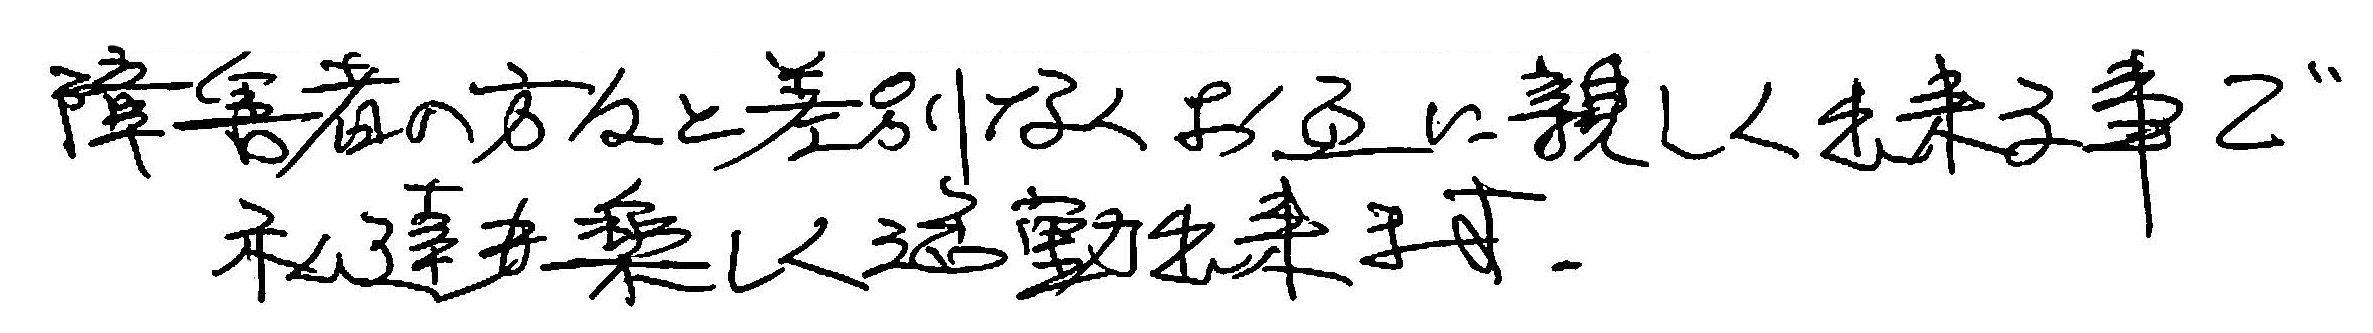 障害者の方々と差別なくお互いに親しく出来る事で
私達も楽しく活動出来ます.